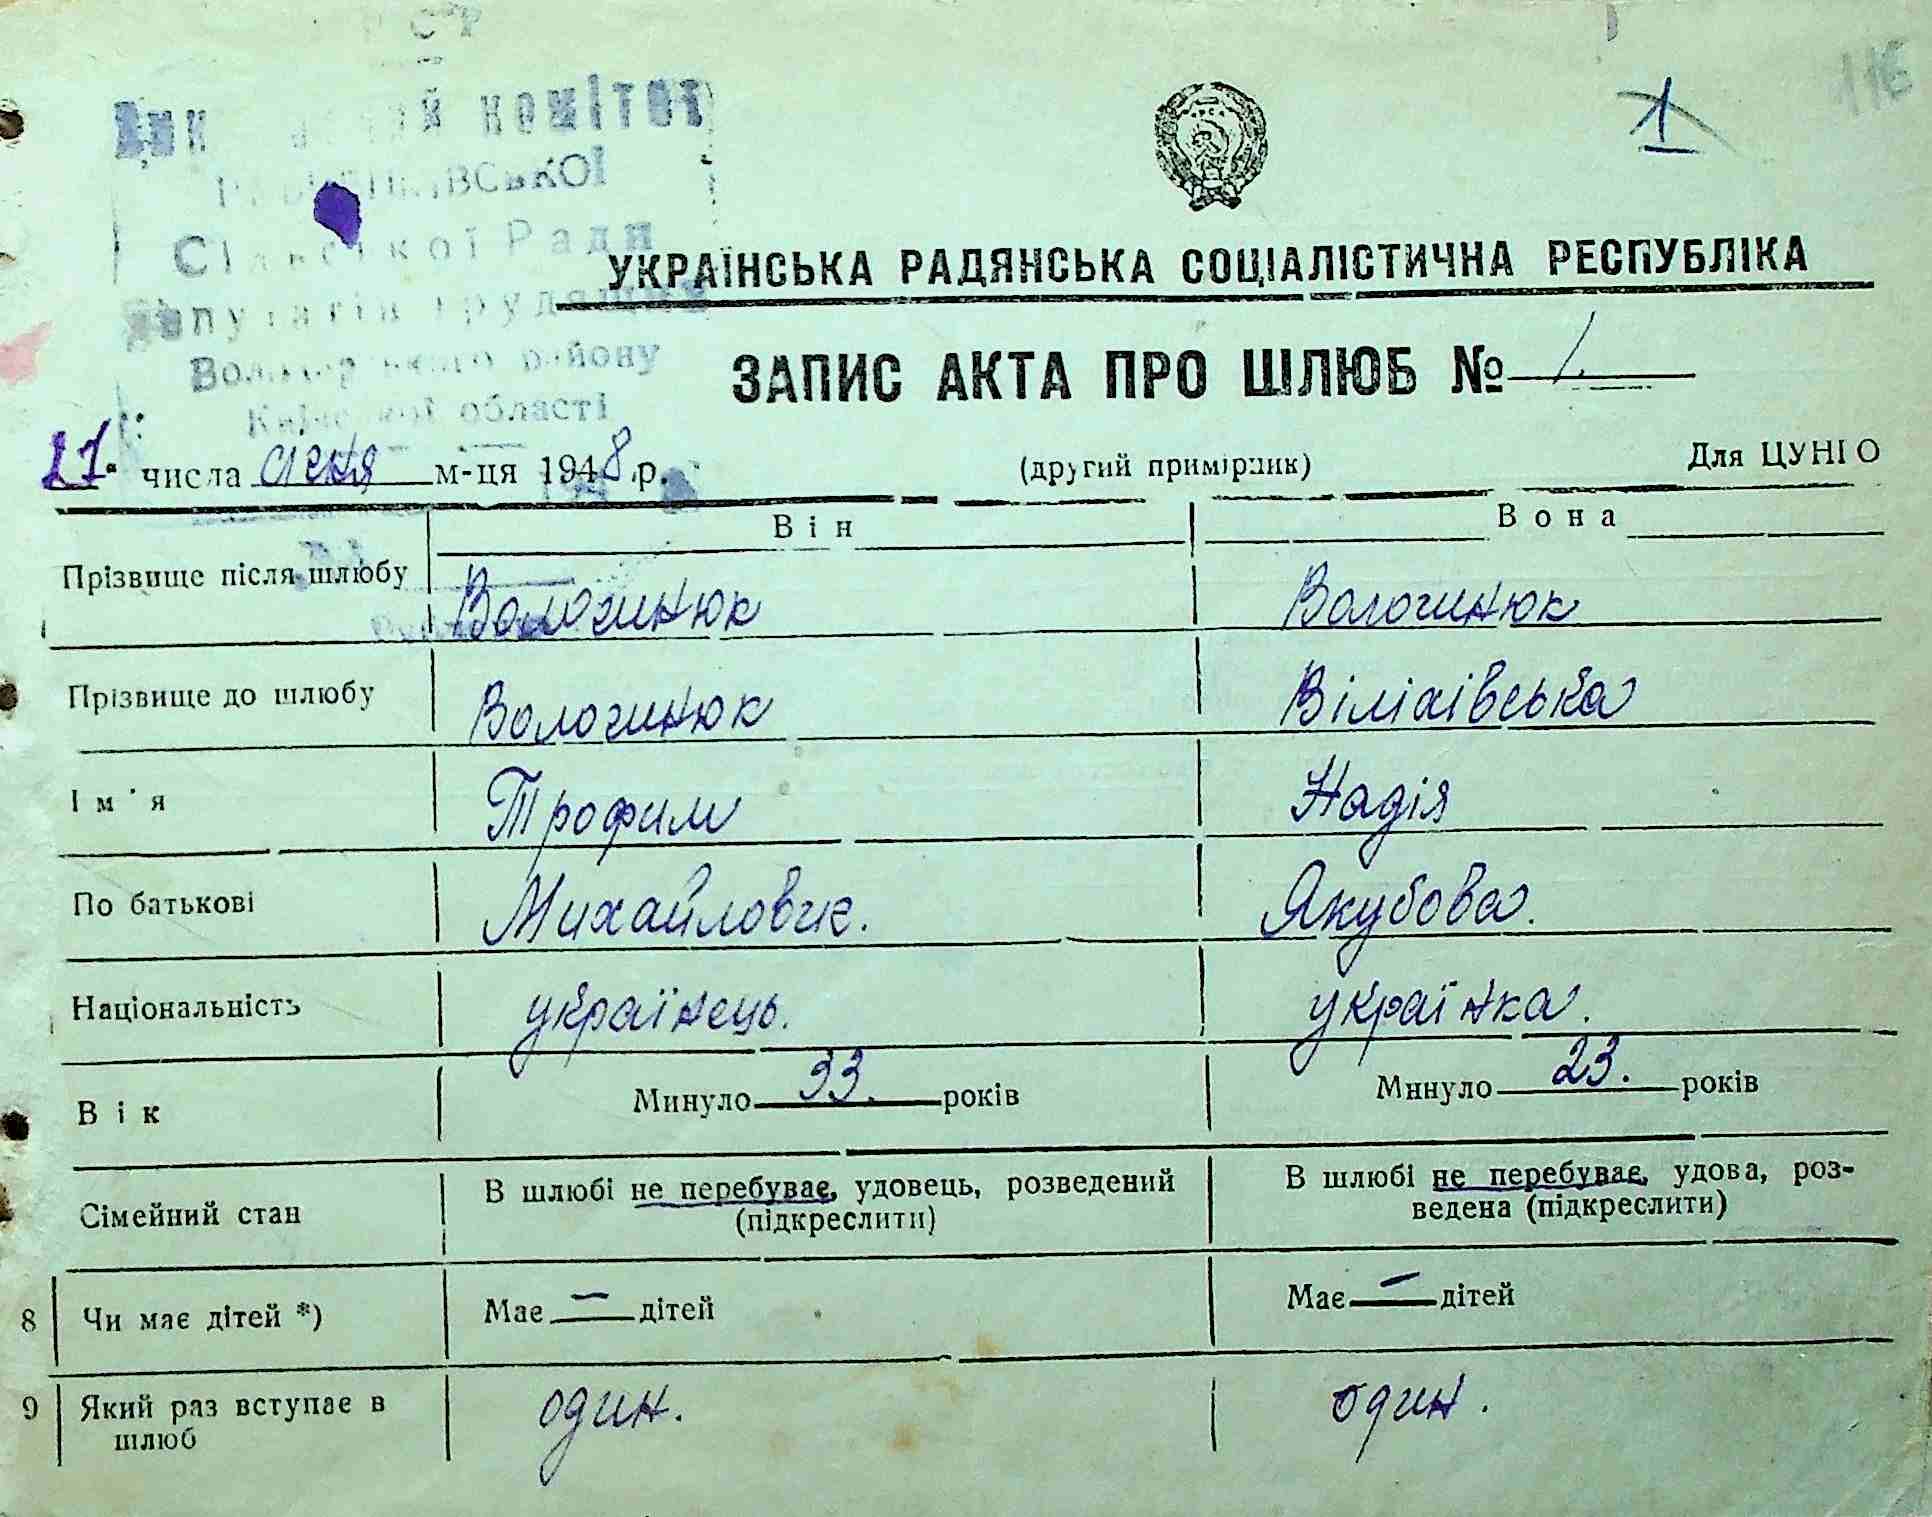 116
1
комітет
Сільської Ради
депутатів трудящих
району
Київської області
УКРАЇНСЬКА РАДЯНСЬКА СОЦІАЛІСТИЧНА РЕСПУБЛІКА
ЗАПИС АКТА ПРО ШЛЮБ № 1.
21 числа січня м-ця 1948 р. (другий примірник) Для ЦУНГО
Він Вона
Прізвище після шлюбу Вологинюк Вологинюк
Прізвище до шлюбу Вологинюк
Ім'я Трофим Надія
По батькові Михайлович. Якубова.
Національність українець. українка.
Вік Минуло 33. років Минуло 23. років
Сімейний стан В шлюбі не перебуває, удовець, розведений В шлюбі не перебуває, удова, роз-
(підкреслити) ведена (підкреслити)
8 Чи має дітей *) Має — дітей Має — дітей
9 Який раз вступає в один. один.
шлюб